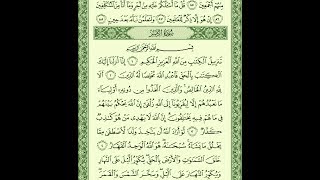 مِنْهُمْ أَجْمَعِينَ ٨٥ قُلْ مَآ أَسْـَٔلُكُمْ عَلَيْهِ مِنْ أَجْرٍ وَمَآ أَنَا۠ مِنَ ٱلْمُتَكَلِّفِينَ
٨٦ إِنْ هُوَ إِلَّا ذِكْرٌ لِّلْعَٰلَمِينَ ٨٧ وَلَتَعْلَمُنَّ نَبَأَهُۥ بَعْدَ حِينٍۭ ٨٨
سُورَةُ الزُّمَرِ
بِسْمِ ٱللَّهِ ٱلرَّحْمَٰنِ ٱلرَّحِيمِ
تَنزِيلُ ٱلْكِتَٰبِ مِنَ ٱللَّهِ ٱلْعَزِيزِ ٱلْحَكِيمِ ١ إِنَّآ أَنزَلْنَآ إِلَيْكَ
ٱلْكِتَٰبَ بِٱلْحَقِّ فَٱعْبُدِ ٱللَّهَ مُخْلِصًا لَّهُ ٱلدِّينَ ٢ أَلَا
لِلَّهِ ٱلدِّينُ ٱلْخَالِصُ وَٱلَّذِينَ ٱتَّخَذُوا۟ مِن دُونِهِۦٓ أَوْلِيَآءَ
مَا نَعْبُدُهُمْ إِلَّا لِيُقَرِّبُونَآ إِلَى ٱللَّهِ زُلْفَىٰٓ إِنَّ ٱللَّهَ يَحْكُمُ بَيْنَهُمْ
فِى مَا هُمْ فِيهِ يَخْتَلِفُونَ إِنَّ ٱللَّهَ لَا يَهْدِى مَنْ هُوَ كَٰذِبٌ
كَفَّارٌ ٣ لَّوْ أَرَادَ ٱللَّهُ أَن يَتَّخِذَ وَلَدًا لَّٱصْطَفَىٰ مِمَّا
يَخْلُقُ مَا يَشَآءُ سُبْحَٰنَهُۥ هُوَ ٱللَّهُ ٱلْوَٰحِدُ ٱلْقَهَّارُ ٤
خَلَقَ ٱلسَّمَٰوَٰتِ وَٱلْأَرْضَ بِٱلْحَقِّ يُكَوِّرُ ٱلَّيْلَ عَلَى ٱلنَّهَارِ
وَيُكَوِّرُ ٱلنَّهَارَ عَلَى ٱلَّيْلِ وَسَخَّرَ ٱلشَّمْسَ وَٱلْقَمَرَ